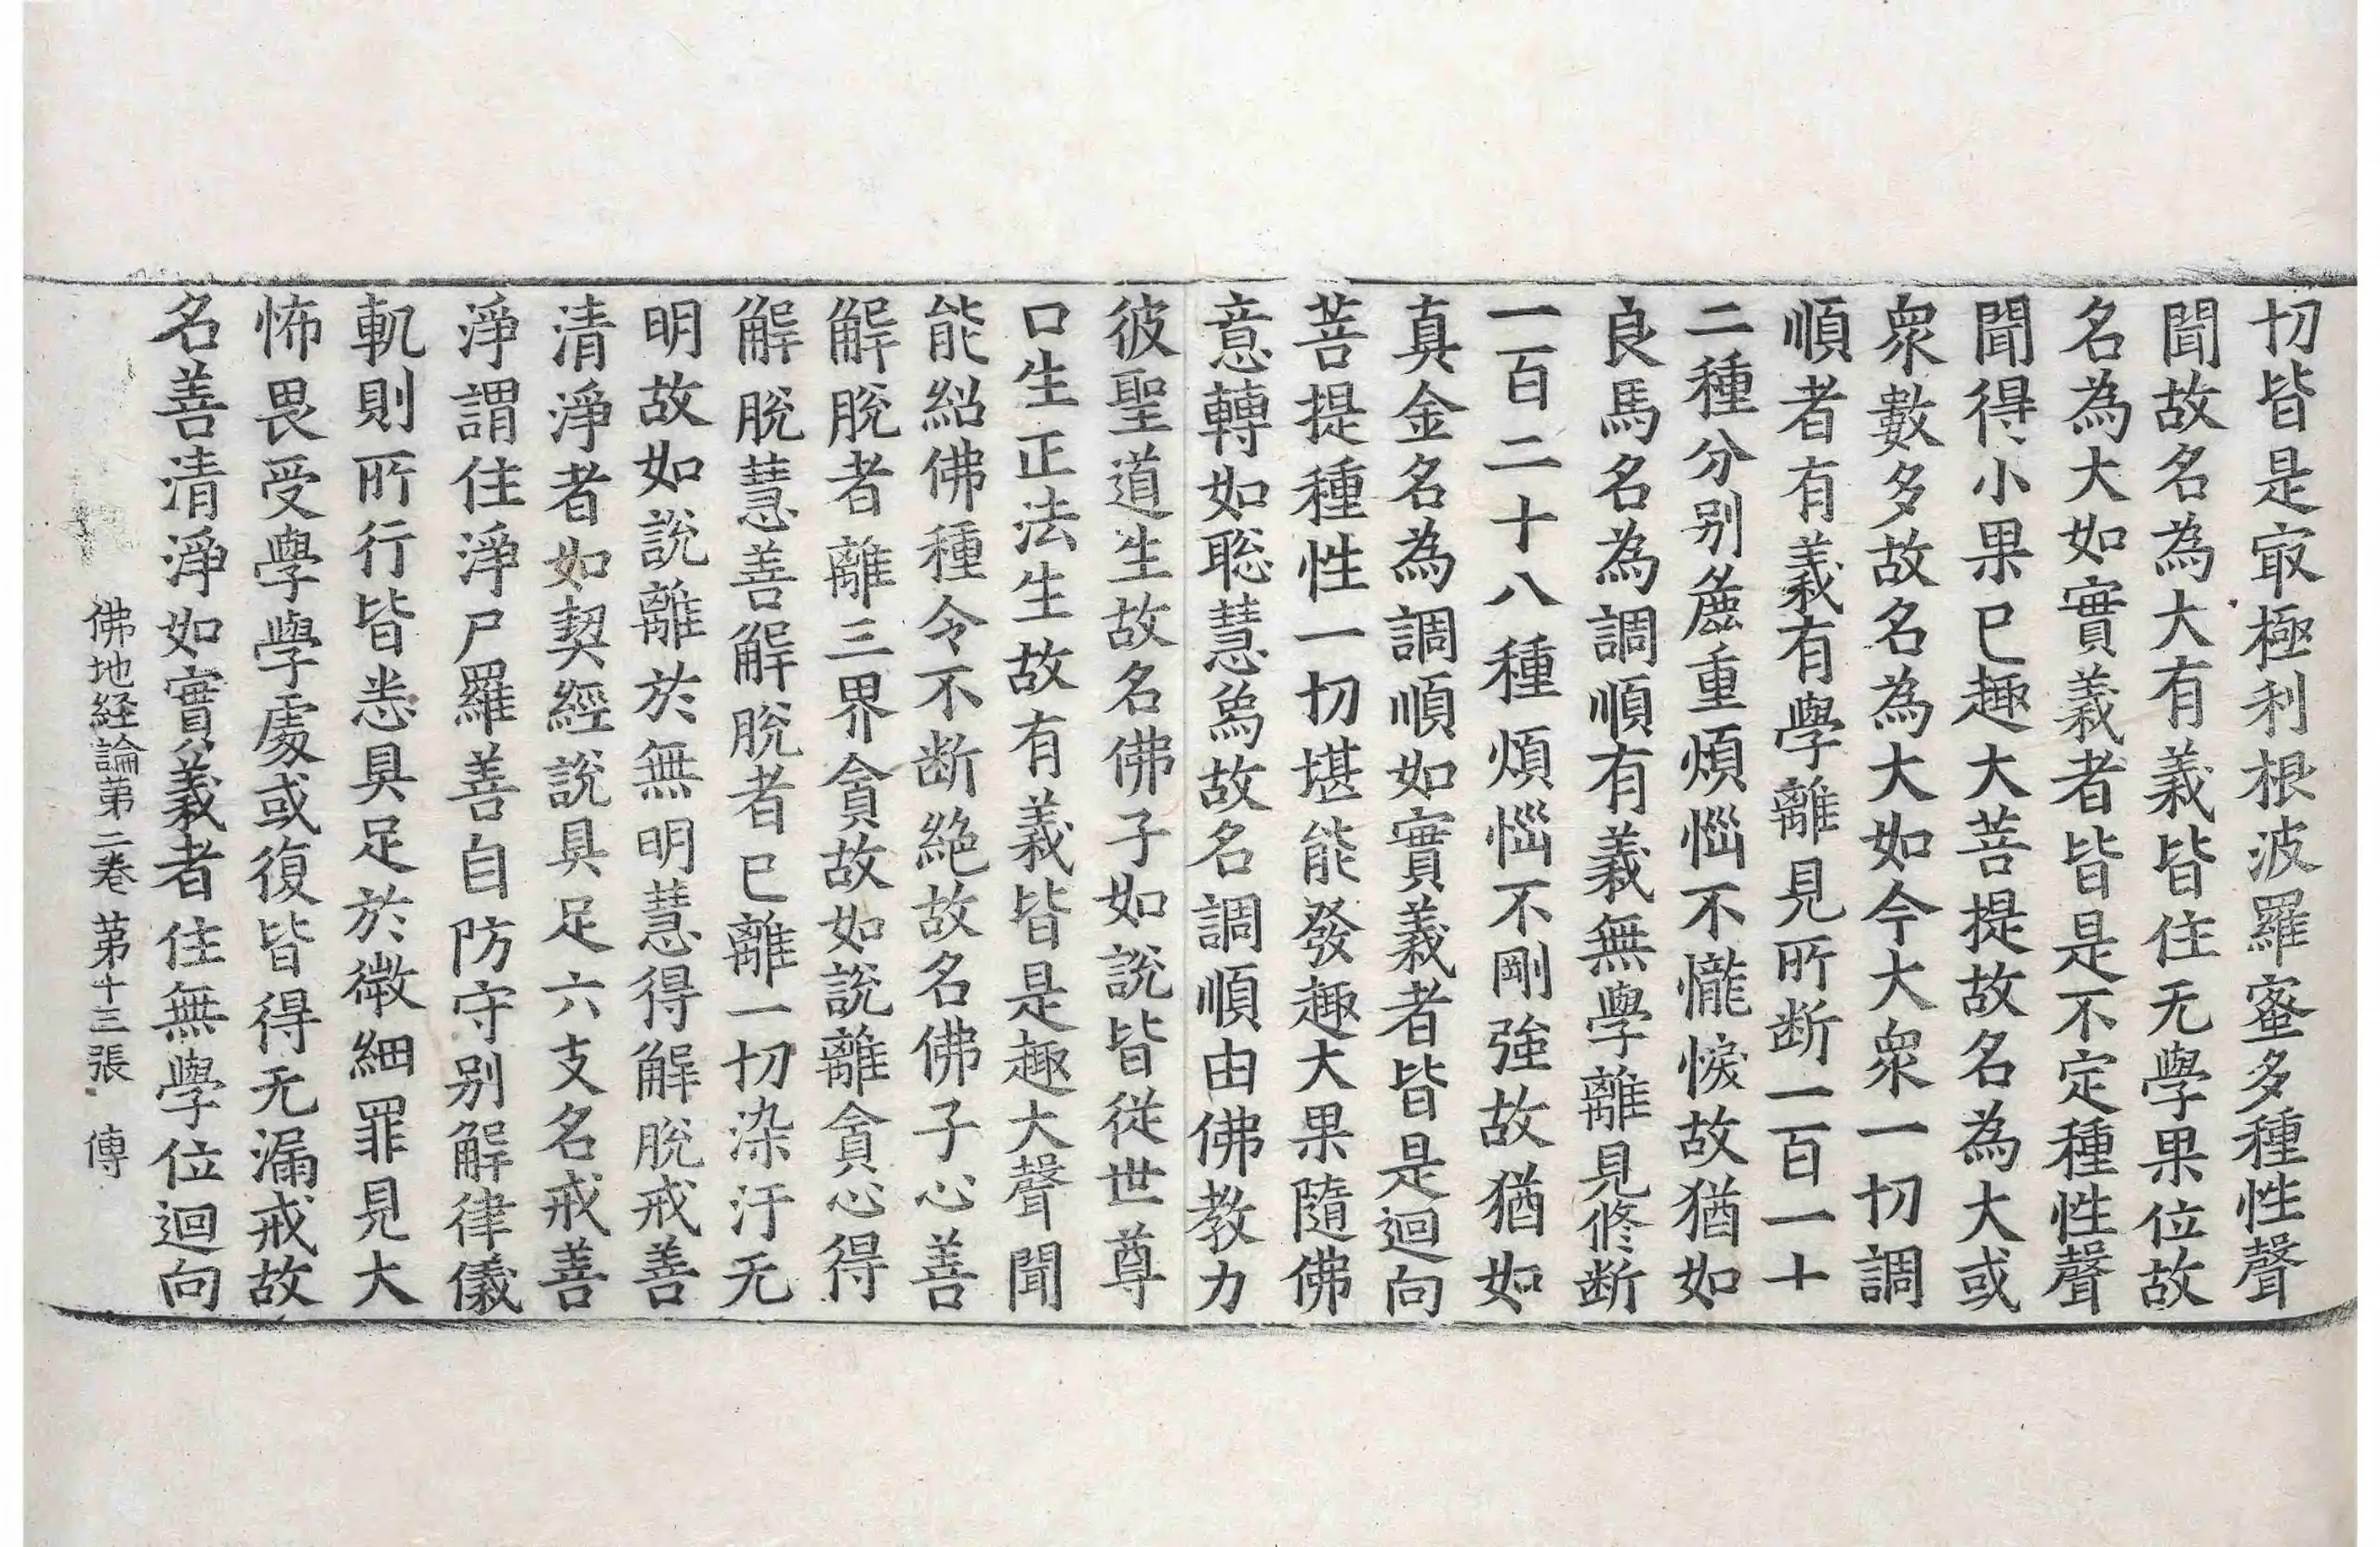 切皆是㝡極利根波羅蜜多種性聲
聞故名為大有義皆住无學果位故
名為大如實義者皆是不定種性聲
聞得小果已趣大菩提故名為大或
衆數多故名為大如今大衆一切調
順者有義有學離見所断一百一十
二種分别麁重煩惱不㦬悷故猶如
良馬名為調順有義無學離見修断
一百二十八種煩惱不剛強故猶如
真金名為調順如實義者皆是迴向
菩提種性一切堪能發趣大果隨佛
意轉如聡慧爲故名調順由佛教力
彼聖道生故名佛子如說皆從世尊
口生正法生故有義皆是趣大聲聞
能紹佛種令不断絶故名佛子心善
解脫者離三界貪故如說離貪心得
解脫慧善解脫者已離一切染汙无
明故如說離於無明慧得解脫戒善
清淨者如契經說具足六支名戒善
淨謂住淨尸羅善自防守别解律儀
軌則所行皆悉具足於微細罪見大
怖畏受學學處或復皆得无漏戒故
名善清淨如實義者住無學位迴向
佛地経論第二卷 第十三張 傳